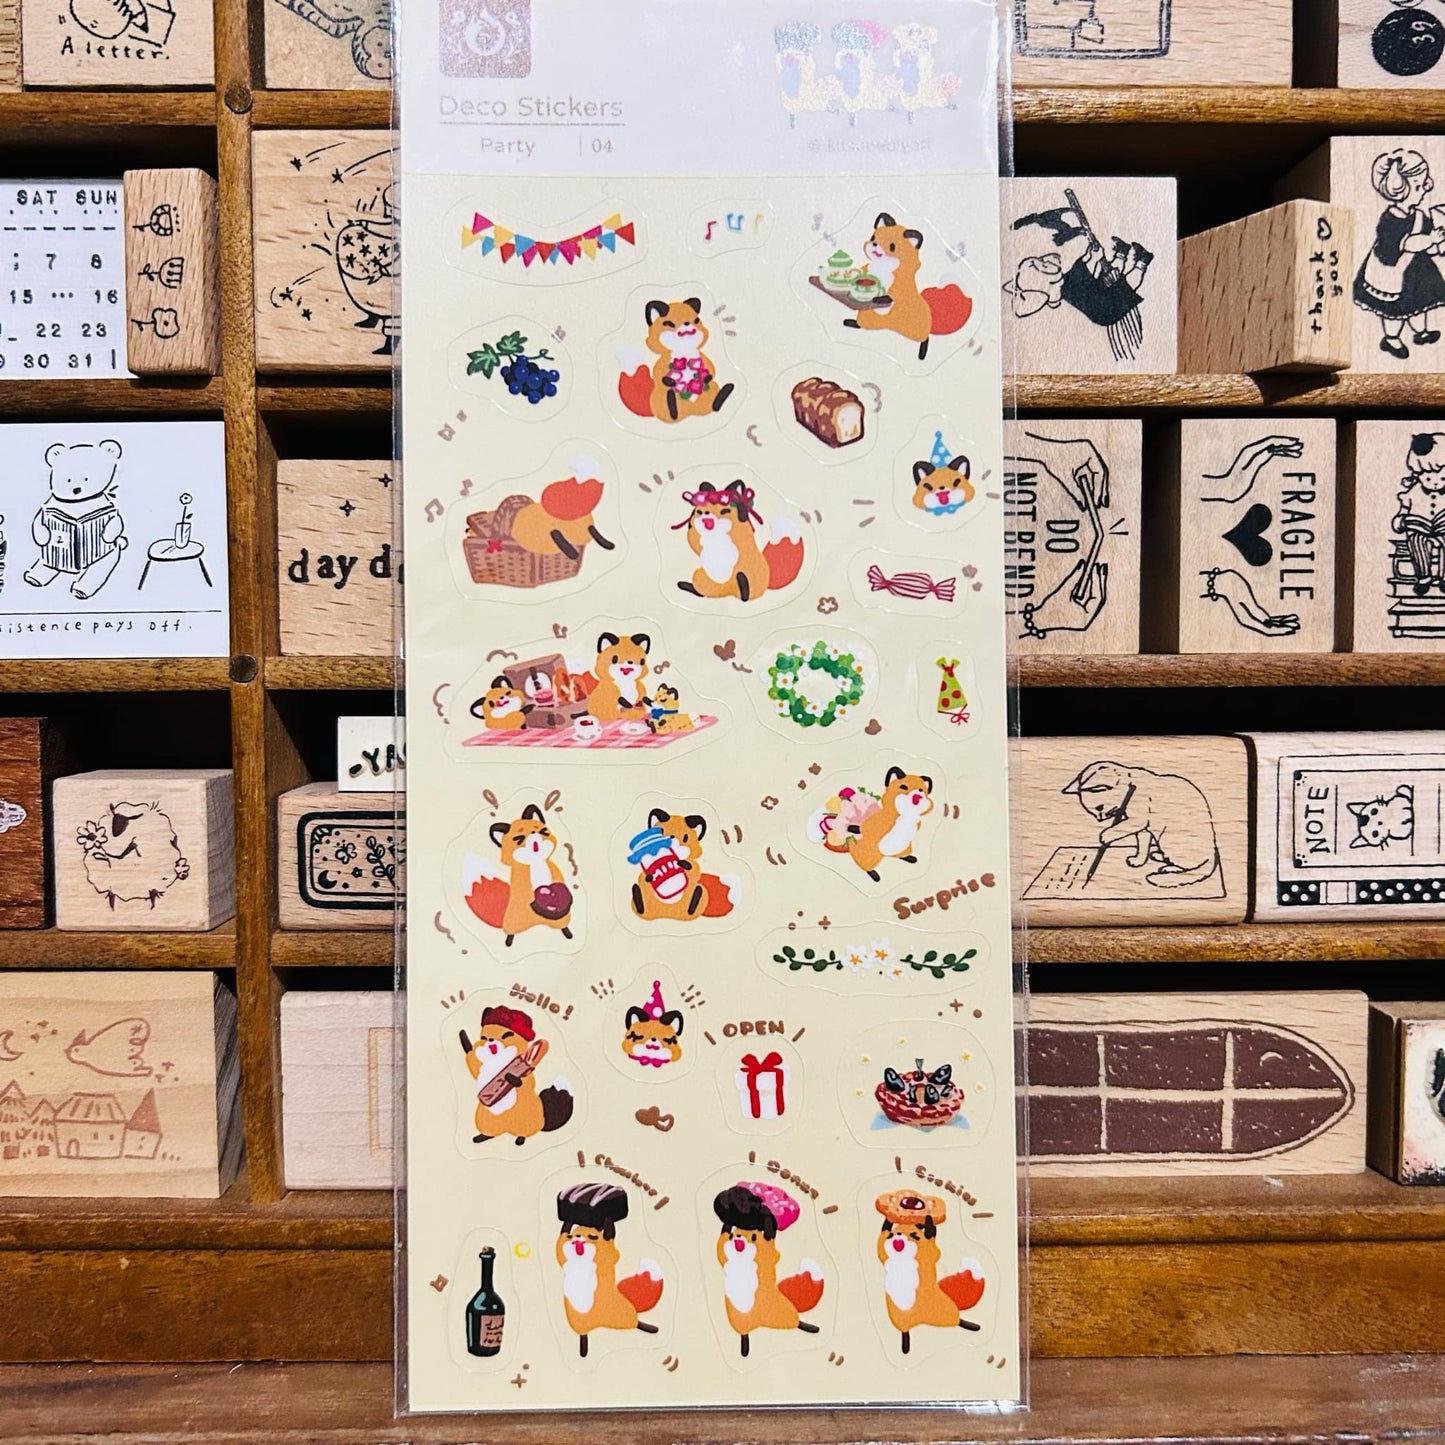 A letter.
Deco Stickers
Party | 04
39
SAT SUN
7 8
15 ... 16
22 23
30 31
thank you
DO
NOT BEND
FRAGILE
day d
sistence pays off.
-YA
Surprise
NOTE
Hello!
OPEN
Donut
Cookies